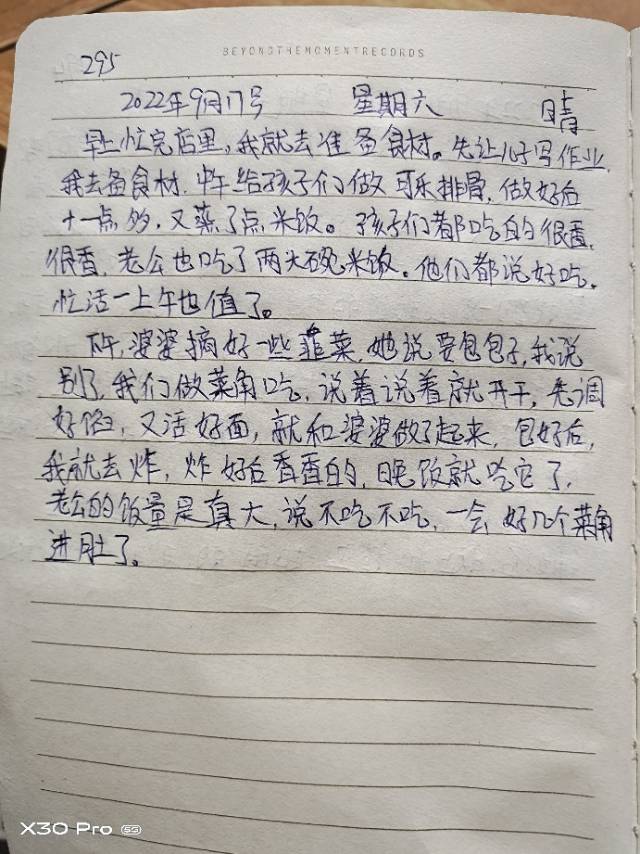 BEYONDTHEMOMENTRECORDS
295
2022年9月17号 星期六 晴
早上忙完店里,我就去准备食材。先让儿子写作业,
我去备食材.中午给孩子们做可乐排骨,做好后
十一点多,又蒸了点米饭。孩子们都吃的很香,
很香,老公也吃了两大碗米饭.他们都说好吃.
忙活一上午也值了。
下午,婆婆摘好一些韭菜,她说要包包子,我说
别了,我们做菜角吃,说着说着就开干,先调
好馅,又活好面,就和婆婆做了起来,包好后,
我就去炸,炸好后香香的,晚饭就吃它了,
老公的饭量是真大,说不吃不吃,一会好几个菜角
进肚了。
X30 Pro 5G